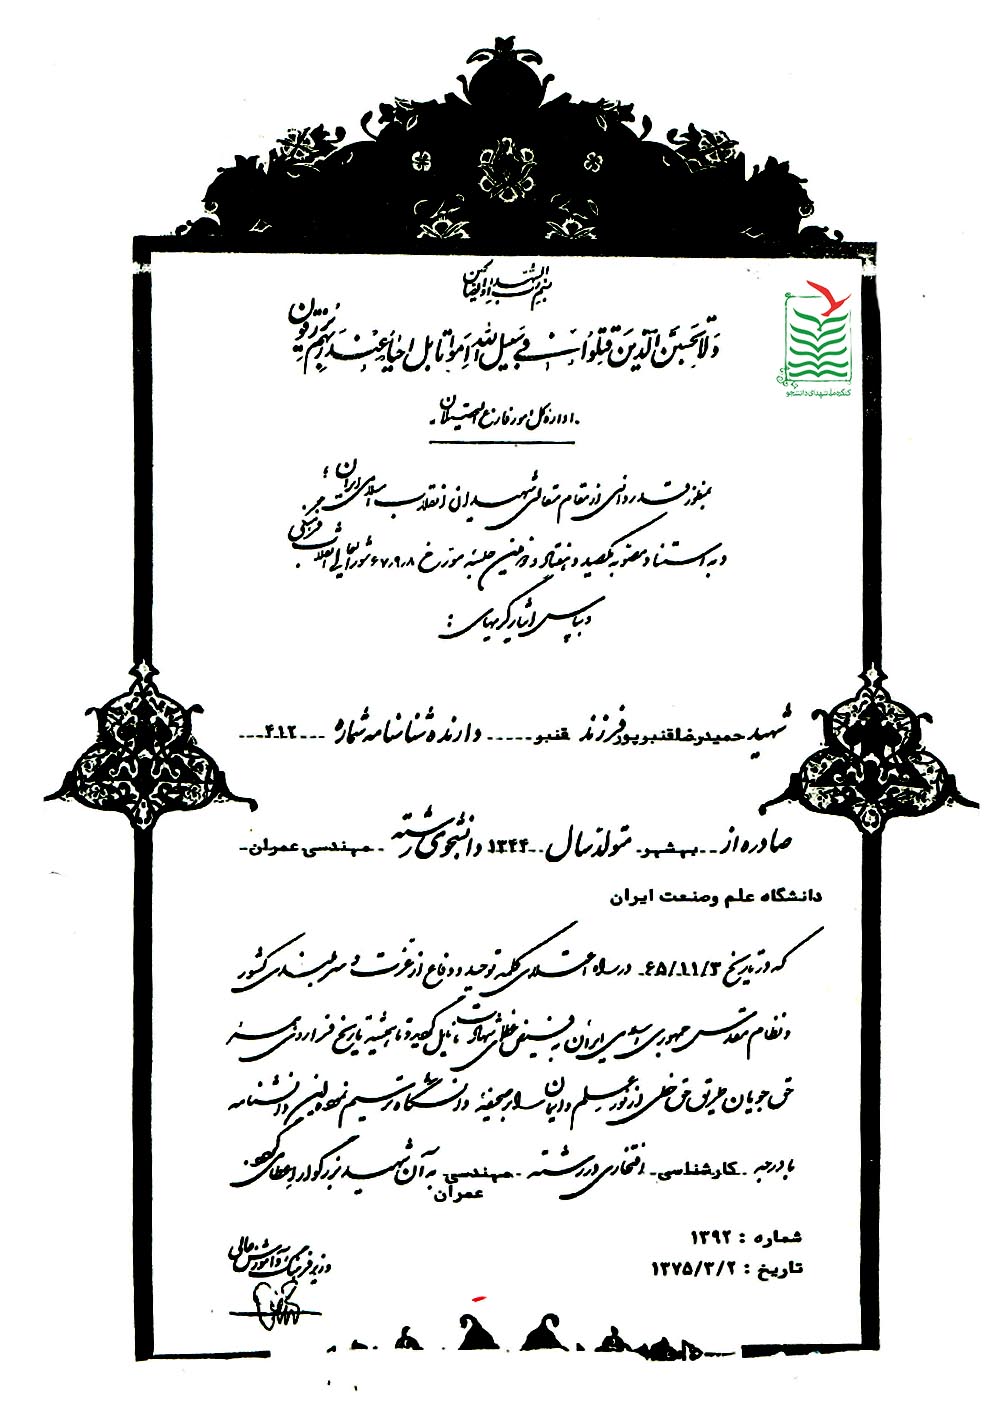 بسم رب الشهداء و الصالحین
ولا تحسبن الذین قتلوا فی سبیل الله امواتا بل احیاء عند ربهم یرزقون
اداره کل امور فارغ التحصیلان
بمنظور قدردانی از مقام متعالی شهیدان انقلاب اسلامی ایران؛
و به استناد مصوبه یکصد و هفتاد و دومین جلسه مورخ ۶۷٫۹٫۸ شورایعالی انقلاب فرهنگی
و بپاس ایثارگریهای :
شهید حمیدرضا قنبرپور فرزند قنبر دارنده شناسنامه شماره ۴۱۲
صادره از بهشهر متولد سال ۱۳۴۴ دانشجوی رشته مهندسی عمران
دانشگاه علم وصنعت ایران
که در تاریخ ۶۵/۱۱/۳ در راه اعتلای کلمه توحید و دفاع از عزت و سربلندی کشور
و نظام مقدس جمهوری اسلامی ایران به فیض عظمای شهادت نایل گردیده و تا همیشه تاریخ فرا روی همه
حق جویان طریق حق خطی از نور علم و ایمان را بر صحیفه دانشگاه ترسیم نموده این دانشنامه
با درجه کارشناسی افتخاری در رشته مهندسی عمران به آن شهید بزرگوار اعطا می گردد.
شماره : ۱۳۹۲
تاریخ : ۱۳۷۵/۳/۲
وزیر فرهنگ و آموزش عالی
کنگره ملی شهدای دانشجو